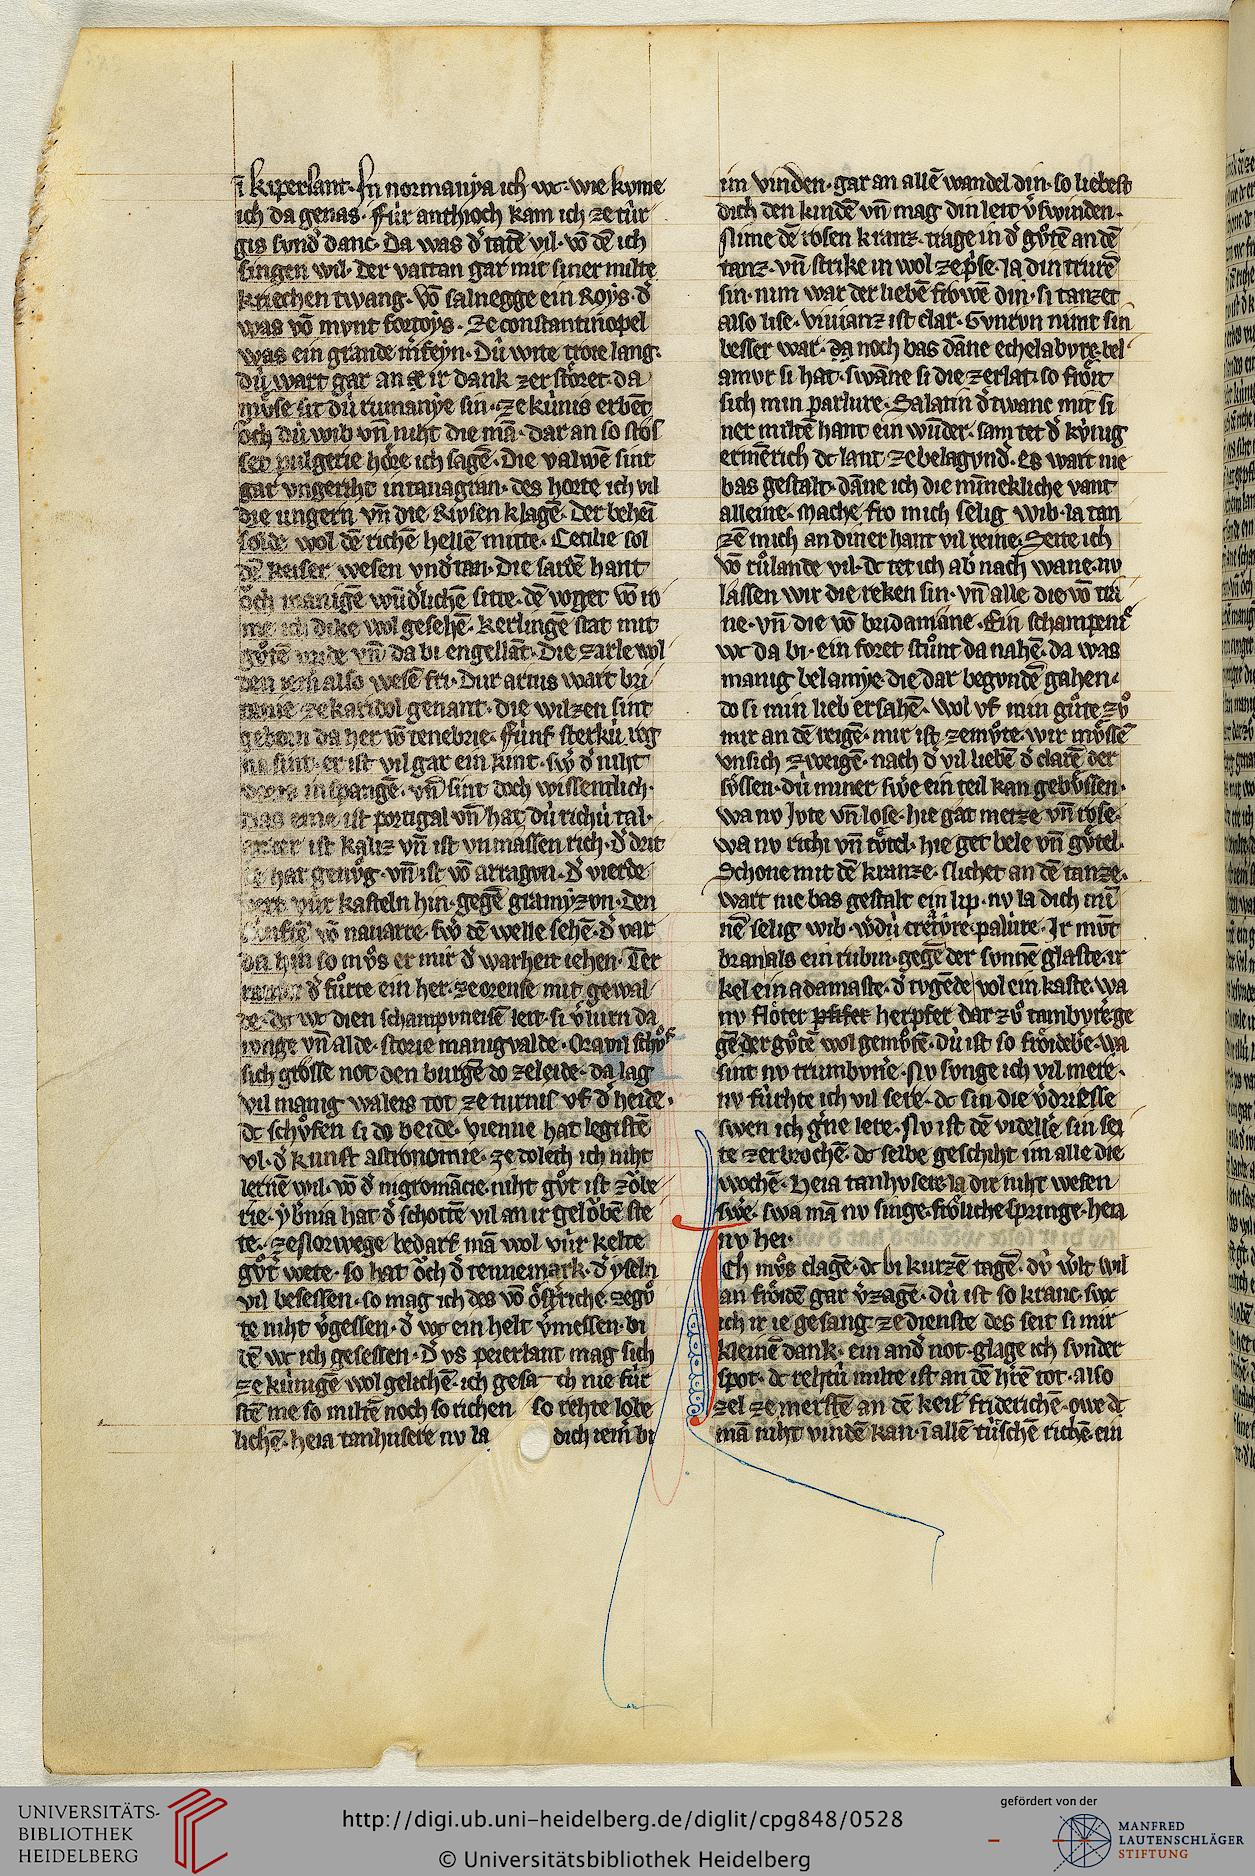 ī kiperlant. In normanẏa ich wc. wie kvme
ich da genas. Für anthioch kam ich ze túr
gis svnd' danc. Da was d' tatē vil. vō dē ich
singen wil. der vattan gar mit siner milte
kriechen twang. vō salnegge ein Roẏs. d'
was vō mvnt fortoẏs. Ze constantinopel
was ein grande
lang.
dú wart gar an ir dank zerstôret. da
sin. ze kúnis erbēt
ŏch dú wib vn̄ niht die mā. dar an so
pulgerie hôre ich sagē. Die valwē sint
gar vngeriht in tanagran. des horte ich vil
die ungern vn̄ die Rivsen klagē. der behein
solde wol dē richē hellē mitte. Cecilie sol
dē keiser wesen vnd'tan. Die sardē hant
ŏch manigē wūd'lichē sitte. dē voget vō ro
me ich dike wol gesehē. kerlingē stat mit
gv̊tē vride vn̄ da bi engellāt. Die zarle wol
den iem' also wesē fri. Dur artus wart bri
ze karidol genant. die wilzen sint
geborn da her vō tenebrie. Fúnf sterkú
sint. er ist vil gar ein kint. sw' d' niht
in spangē. vn̄ sint doch wissentlich.
das eine ist portigal vn̄ hat dú richú tal.
ist kaliz vn̄ ist vnmassen rich. d' drit
te hat genv̊g. vn̄ ist vō arragon. d' vierde
vúr kasteln hin. gegē
den
vō nauarre. sw' dē welle sehē. d' var
da hin so mv̊s er mir d' warheit iehen. Ter
d' fûrte ein her. ze orense mit gewal
te. dc wc dien schampvneisē leit. si v'lurn da
iunge vn̄ alde. storie manigvalde. Oravil schv̊f
sich grosse not den burgē do ze leide. da lag
vil manig waleis tot ze turnis vf d' heide.
dc schv̊fen si do beide. vienne hat legistē
vl. d' kunst astronomie. ze tolech ich niht
lernē wil. vō d' nigromācie. niht gv̊t ist zôbe
rie. ẏb'nia hat d' schottē vil an ir gelôbē ste
te. ze norwege bedarf mā wol vúr kelte
gv̊t wete. so hat ŏch d' tennemark. d' ẏseln
vil besessen. so mag ich des vō ôstriche ze gv̊
te niht v'gessen. d' wc ein helt v'messen. bi
dē wc ich gesessen. D' vs peierlant mag sich
ze kúnigē wol gelichē. ich gesa ch nie fúr
stē me so miltē noch so richen so rehte lobe
lichē. heia tanhusere nv la dich iem' bi
im vinden. gar an allē wandel din. so liebest
dich den kindē vn̄ mag din leit v'swinden.
Nime dē rosen kranz. trage in d' gv̊tē an dē
tanz. vn̄ strike in wol ze p'se. la din trurē
sin. nim war der liebē frowē din. si tanzet
also lise. viuianz ist clar. Gvnrvn nimt sin
besser war. da noch bas dāne echelabvre. bel
amvr si hat. swāne si die zerlat. so frôit
sich min parlure. Salatin d' twanc mit si
ner miltē hant ein wūder. sam tet d' kv́nig
ermērich dc lant ze belagvnd'. Es wart nie
bas gestalt. dāne ich die mīnekliche vant
alleine. Mache fro mich selig wib. la tan
zē mich an diner hant vil reine. Seite ich
vō rûlande vil. dc tet ich ab' nach wane. nv
lassen wir die reken sin. vn̄ alle die vō tra
ne. vn̄ die vō bridamsane. Ein
wc da bi. ein foret stůnt da nahē. da was
manig belamẏe. die dar begvndē gahen.
do si min lieb ersahē. Wol vf min gûte zv̊
mir an dē reigē. mir ist ze mv̊te. wir mv̊ssē
vnsich zweigē. nach d' vil liebē d' clarē der
sv̊ssen. dú miner sw'e ein teil kan gebv̊ssen.
wa nv Jvte vn̄ lose. hie gat metze vn̄ rose.
wa nv richi vn̄ tôtel. hie get bele vn̄ gv̊tel.
Schone mit dē kranze. slichet an dē tanze.
wart nie bas gestalt ein lip. nv la dich
nē selig wib. w'dú creatvre. palure. Ir mvnt
bran als ein rubin. gegē der svnnē glaste. ir
kel ein adamaste. d' tvgēde wol ein kaste. wa
nv flôter herpfer dar zv̊ tambvre. ge
gē der gv̊tē wol gemv̊tē. dú ist so frôidebe. wa
sint nv trumbvne. Nv svnge ich vil mere.
nv fúrhte ich vil sere. dc sin die v'driesse
swen ich g'ne lere. Nv ist dē videlle sin sei
te zerbrochē. dc selbe geschiht im alle die
wochē. Heia tanhvsere. la dir niht wesen
sw'e. swa mā nv singe. frôliche springe. heia
nv hei.
Ich mv̊s clagē. dc bi kurzē tagē. dv́ w'lt wil
an frôidē gar v'zagē. dú ist so kranc. swc
ich ir ie gesang ze dienste des seit si mir
kleinē dank. ein and' not. glage ich svnder
spot. dc rehtú milte ist an dē h'rē tot. also
zel ze merstē an dē keis' friderichē. owe dc
mā niht vindē kan. ī allē túschē richē. ein
UNIVERSITÄTS-
BIBLIOTHEK
HEIDELBERG
http://digi.ub.uni-heidelberg.de/diglit/cpg848/0528
© Universitätsbibliothek Heidelberg
gefördert von der
MANFRED
LAUTENSCHLÄGER
STIFTUNG